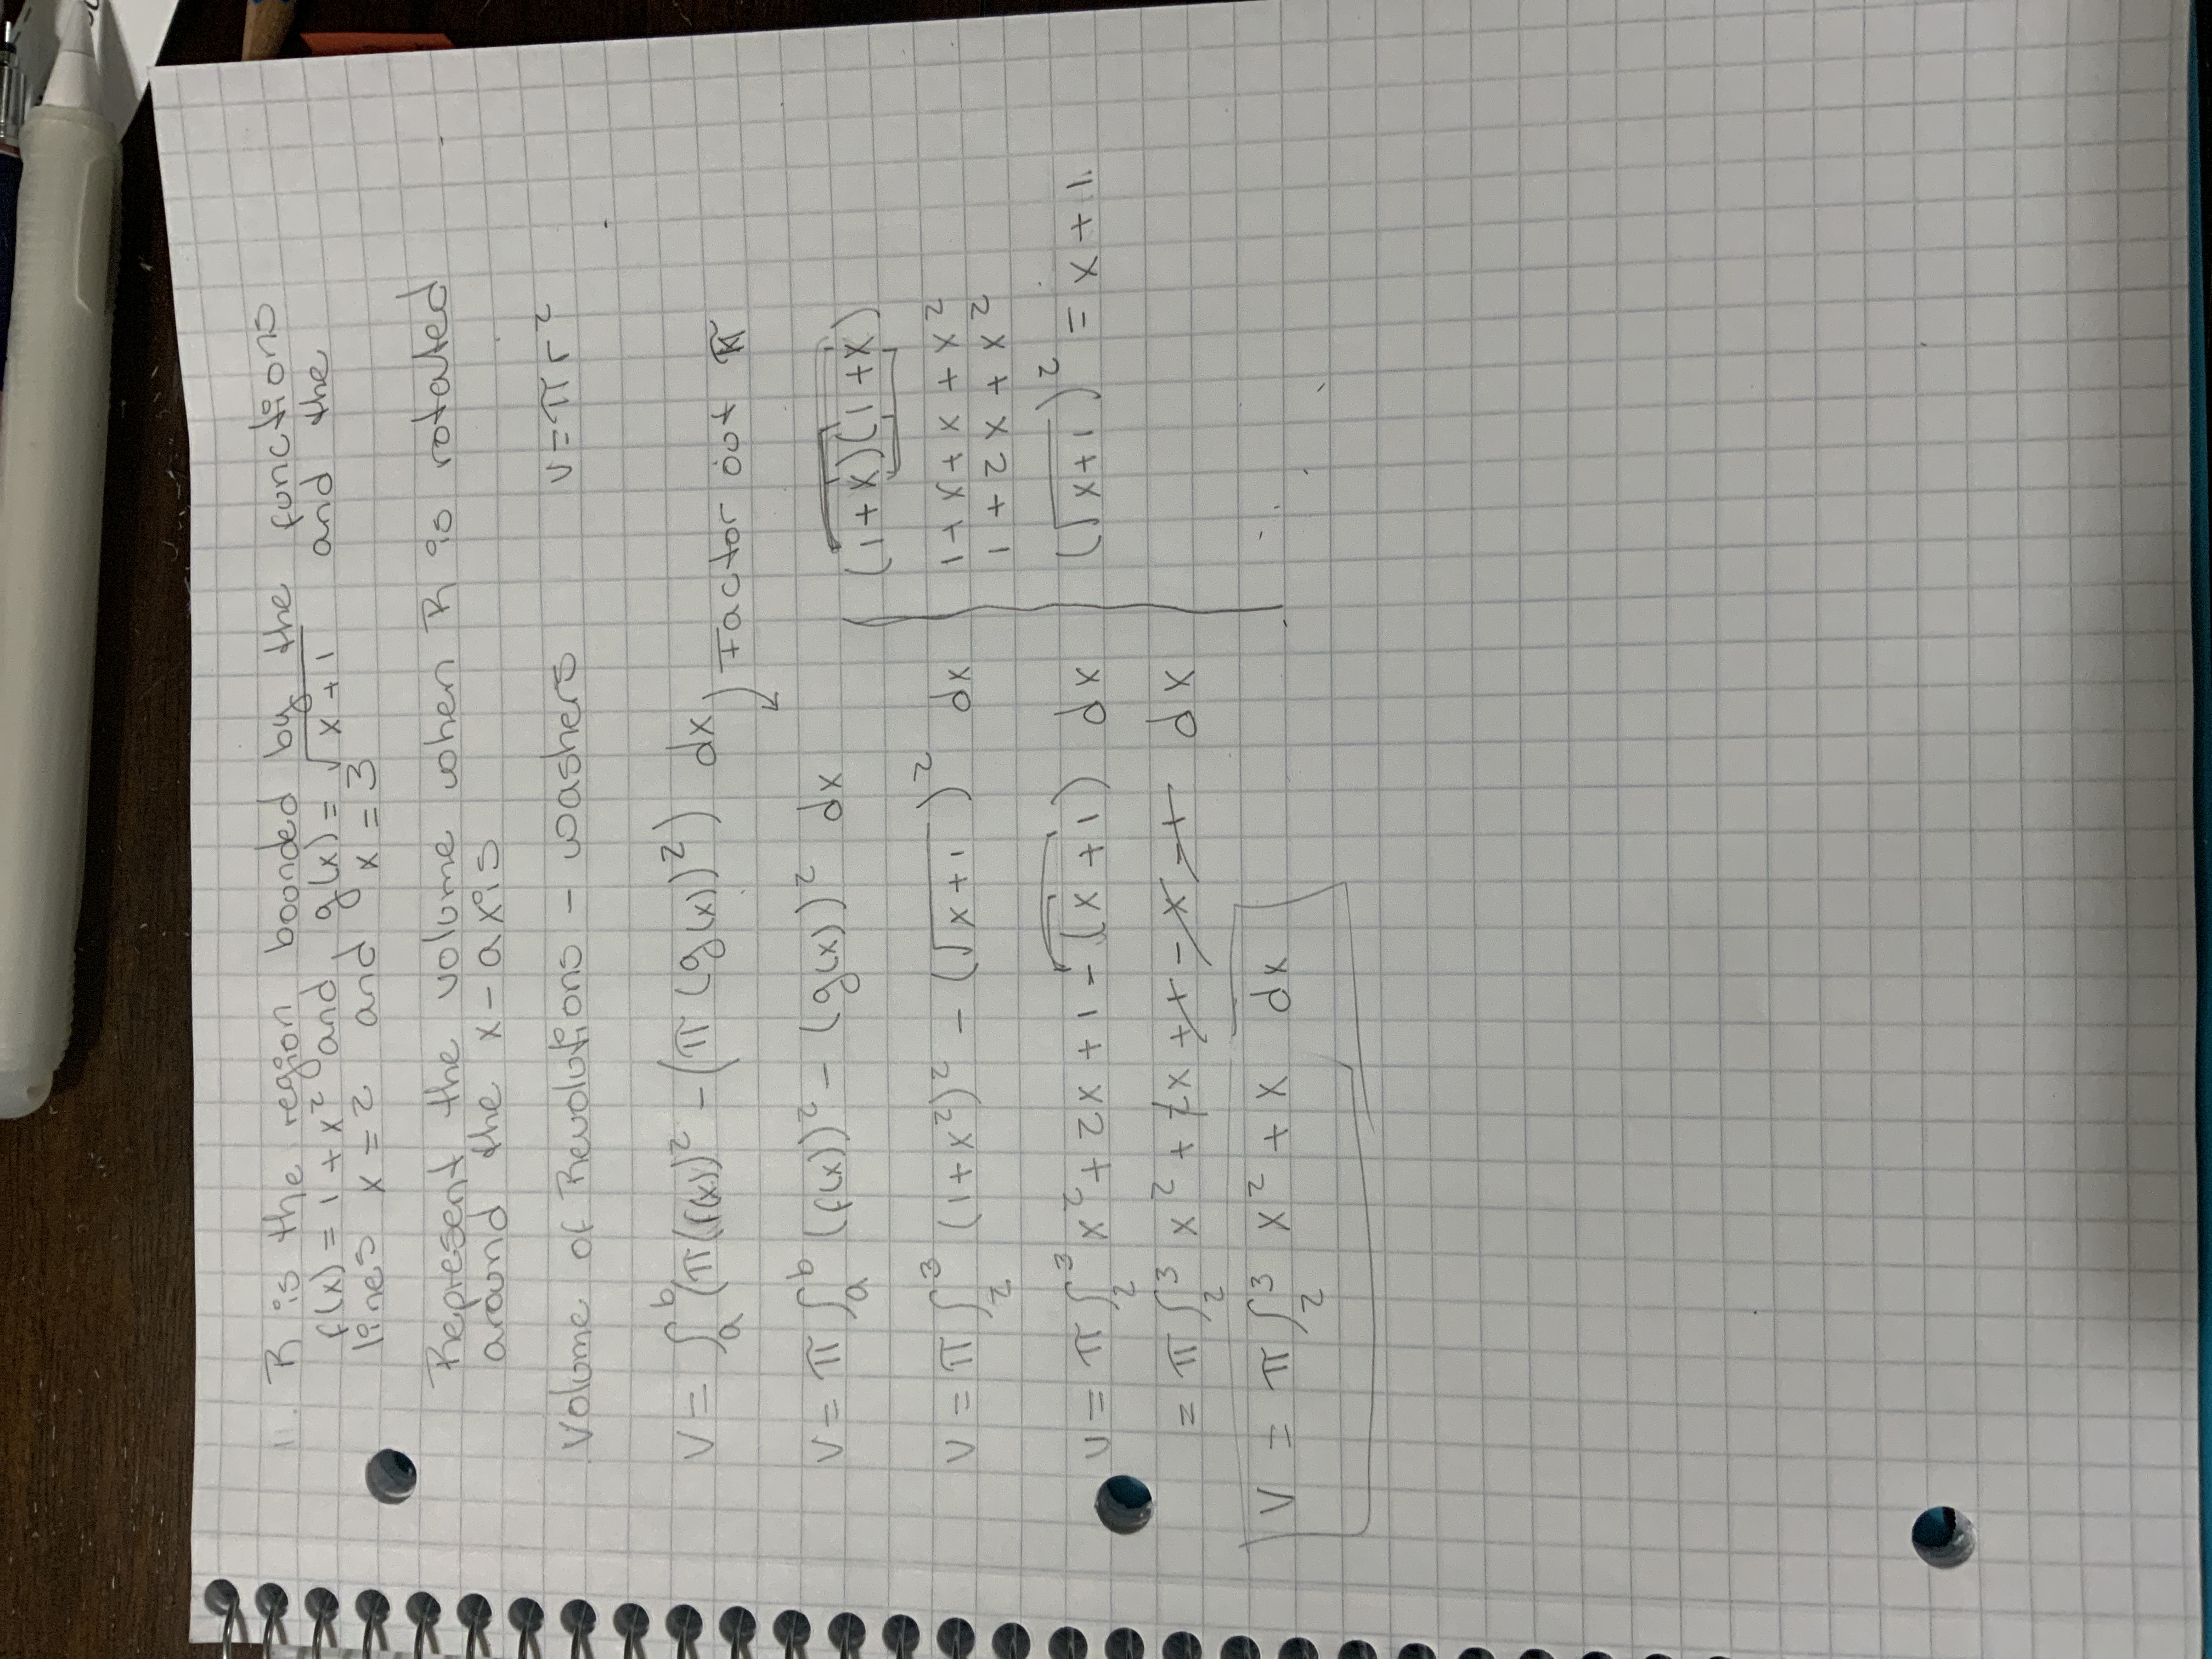 11. R is the region bounded by the functions
f(x) = 1 + x² and g(x) = √(x + 1) and the
lines x = 2 and x = 3
Represent the volume when R is rotated
around the x-axis
Volume of Revolutions - washers V = π r²
V = ∫ₐᵇ (π(f(x))² - (π(g(x))²) dx) Factor out π
V = π ∫ₐᵇ (f(x))² - (g(x))² dx
(1+x)(1+x)
V = π ∫₂³ (1+x²)² - (√(x+1))² dx
1 + x + x + x²
1 + 2x + x²
V = π ∫₂³ x² + 2x + 1 - (x + 1) dx
(√(x+1))² = x + 1
= π ∫₂³ x² + 2x + 1 - x - 1 dx
V = π ∫₂³ x² + x dx